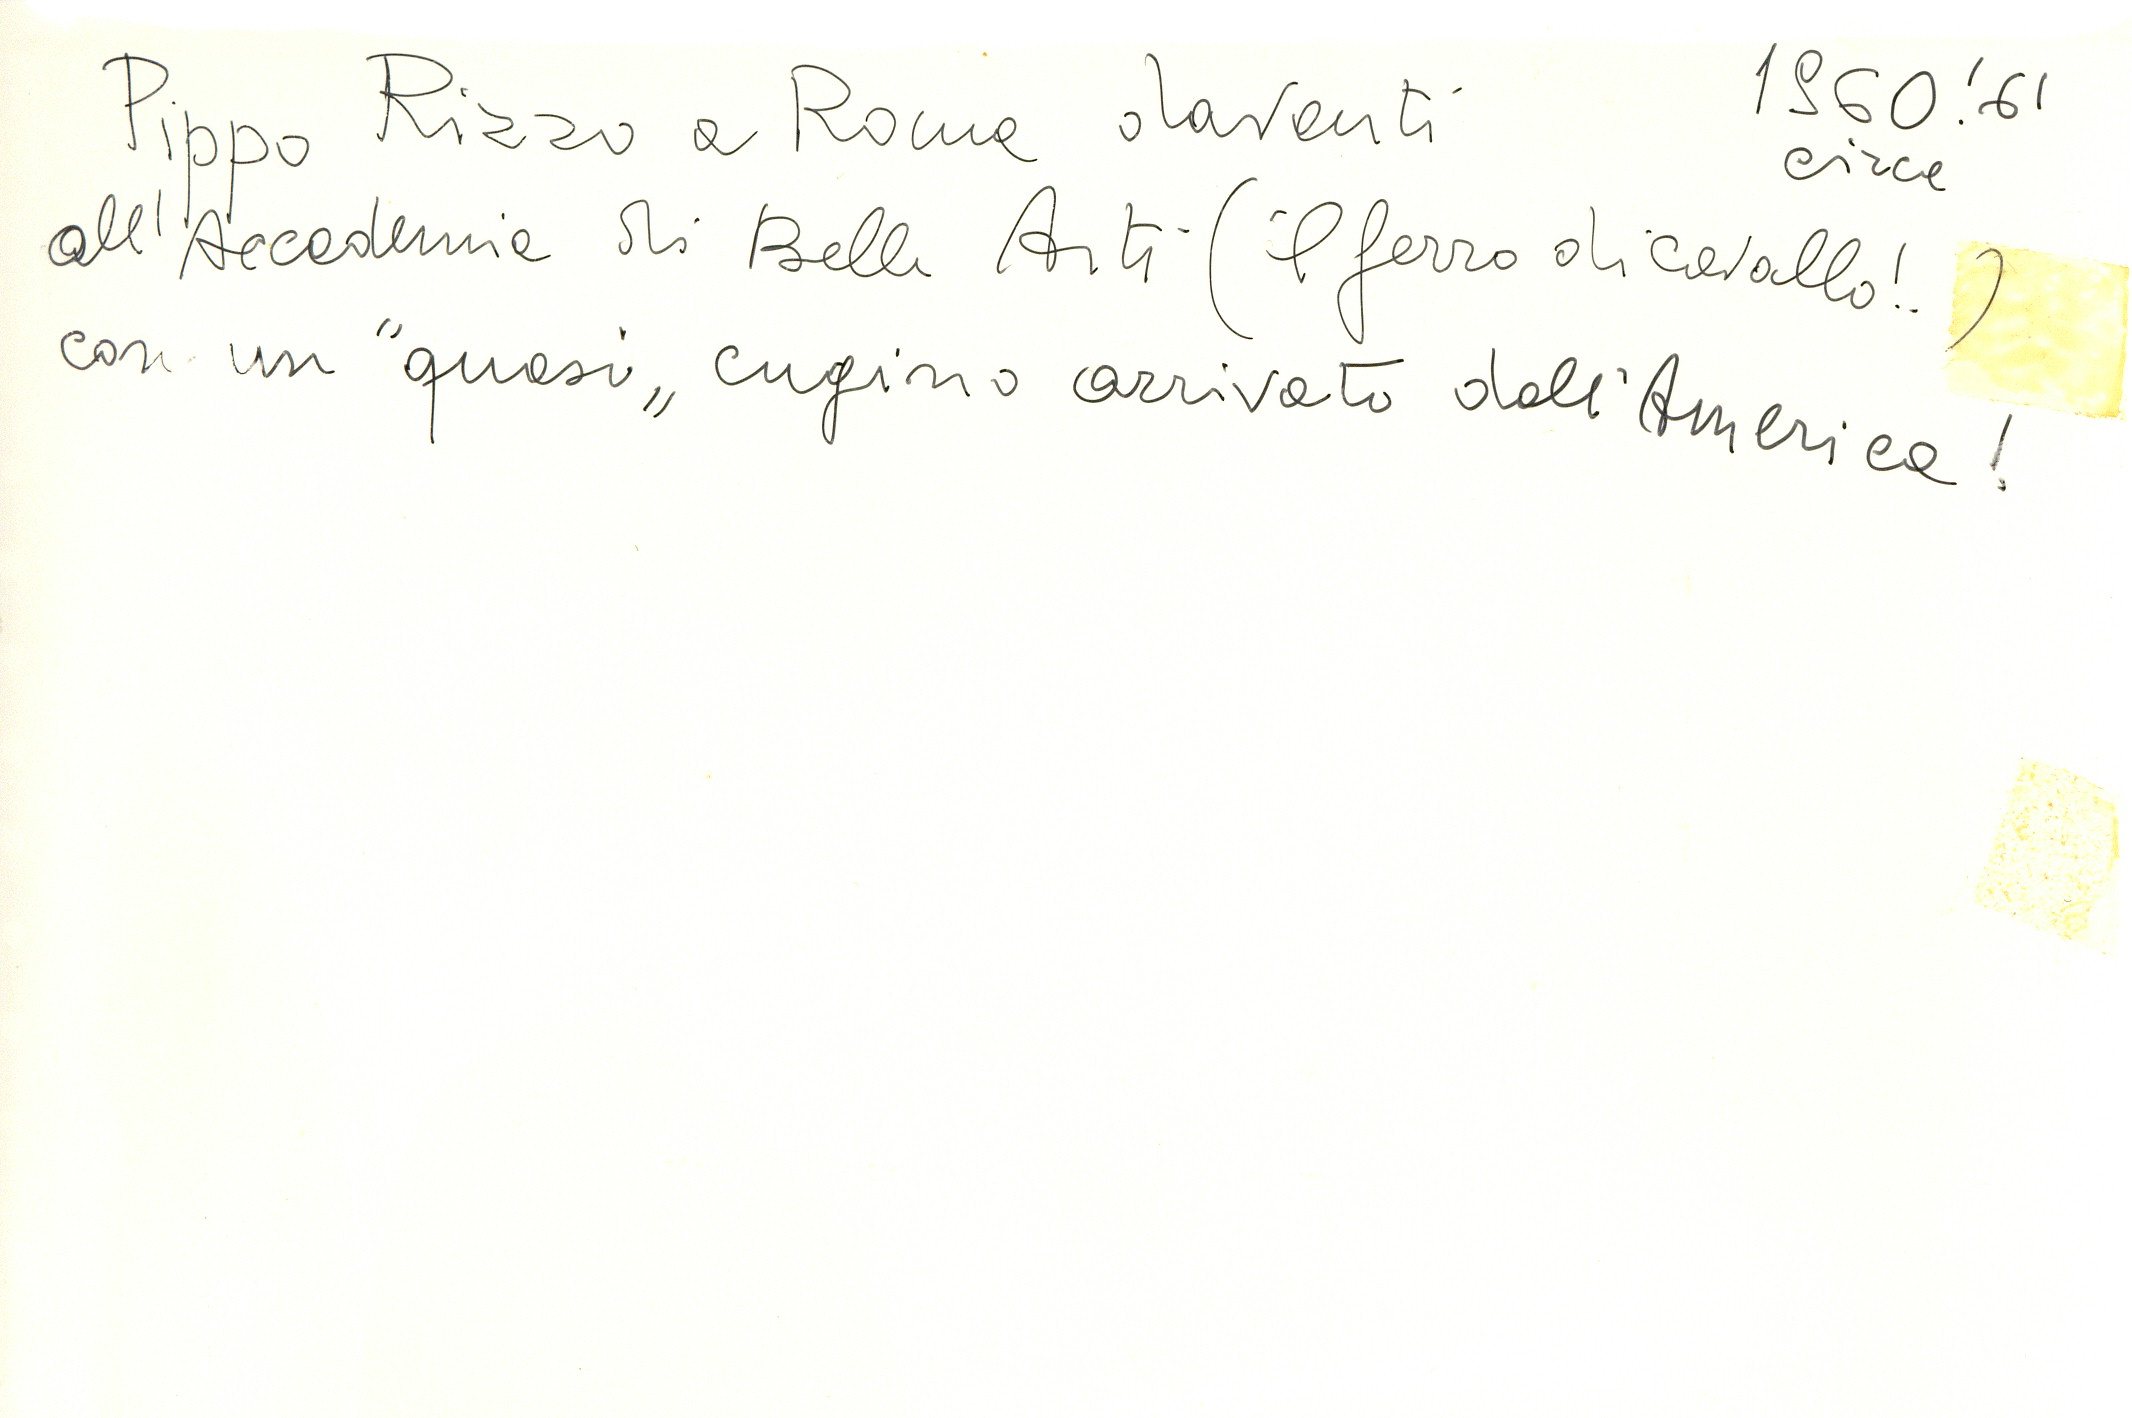 Pippo Rizzo a Roma davanti
1960!61
circa
all'Accademia di Belle Arti (il ferro di cavallo!.)
con un "quasi„ cugino arrivato dall'America!